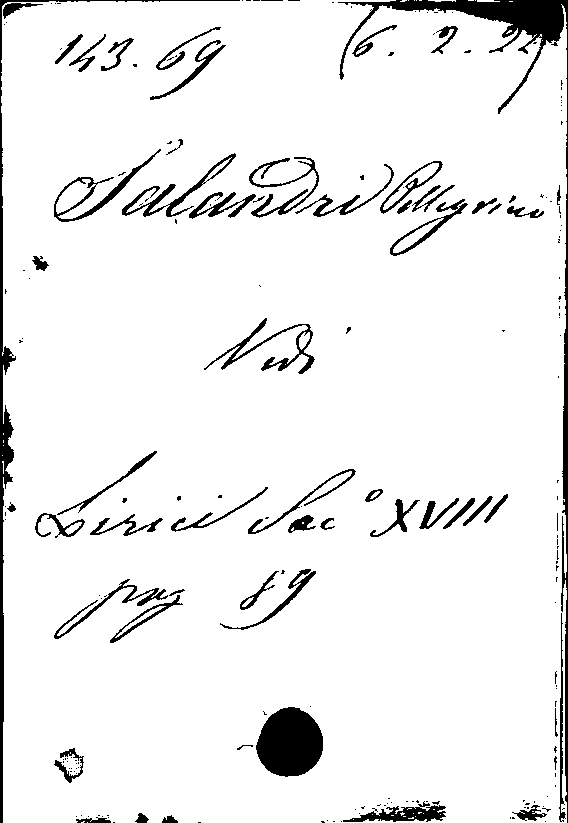 143. 69 (6. 2. 22)
Salandri Pellegrino
Vedi
Lirici Sec° XVIII
pag 89